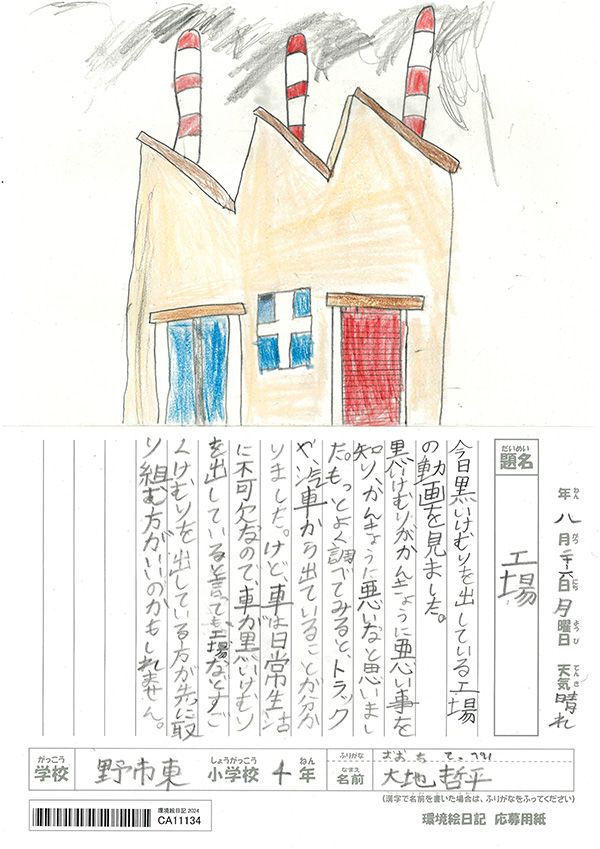 年 八月二十六日 月曜日 天気 晴れ
ねん がつ にち ようび てんき
だいめい
題名 工場
今日黒いけむりを出している工場
の動画を見ました。
黒いけむりがかんきょうに悪い事を
知り、かんきょうに悪いなと思いまし
た。もっとよく調べてみると、トラック
や、汽車から出ていることが分か
りました。けど、車は日常生活
に不可欠なので、車が黒いけむり
を出していると言っても、工場などすご
くけむりを出している方が先に取
り組む方がいいのかもしれません。
がっこう しょうがっこう ねん ふりがな おおち てっぺい
学校 野市東 小学校 4年 名前 大地哲平
なまえ
(漢字で名前を書いた場合は、ふりがなをふってください)
環境絵日記 2024
CA11134
環境絵日記 応募用紙